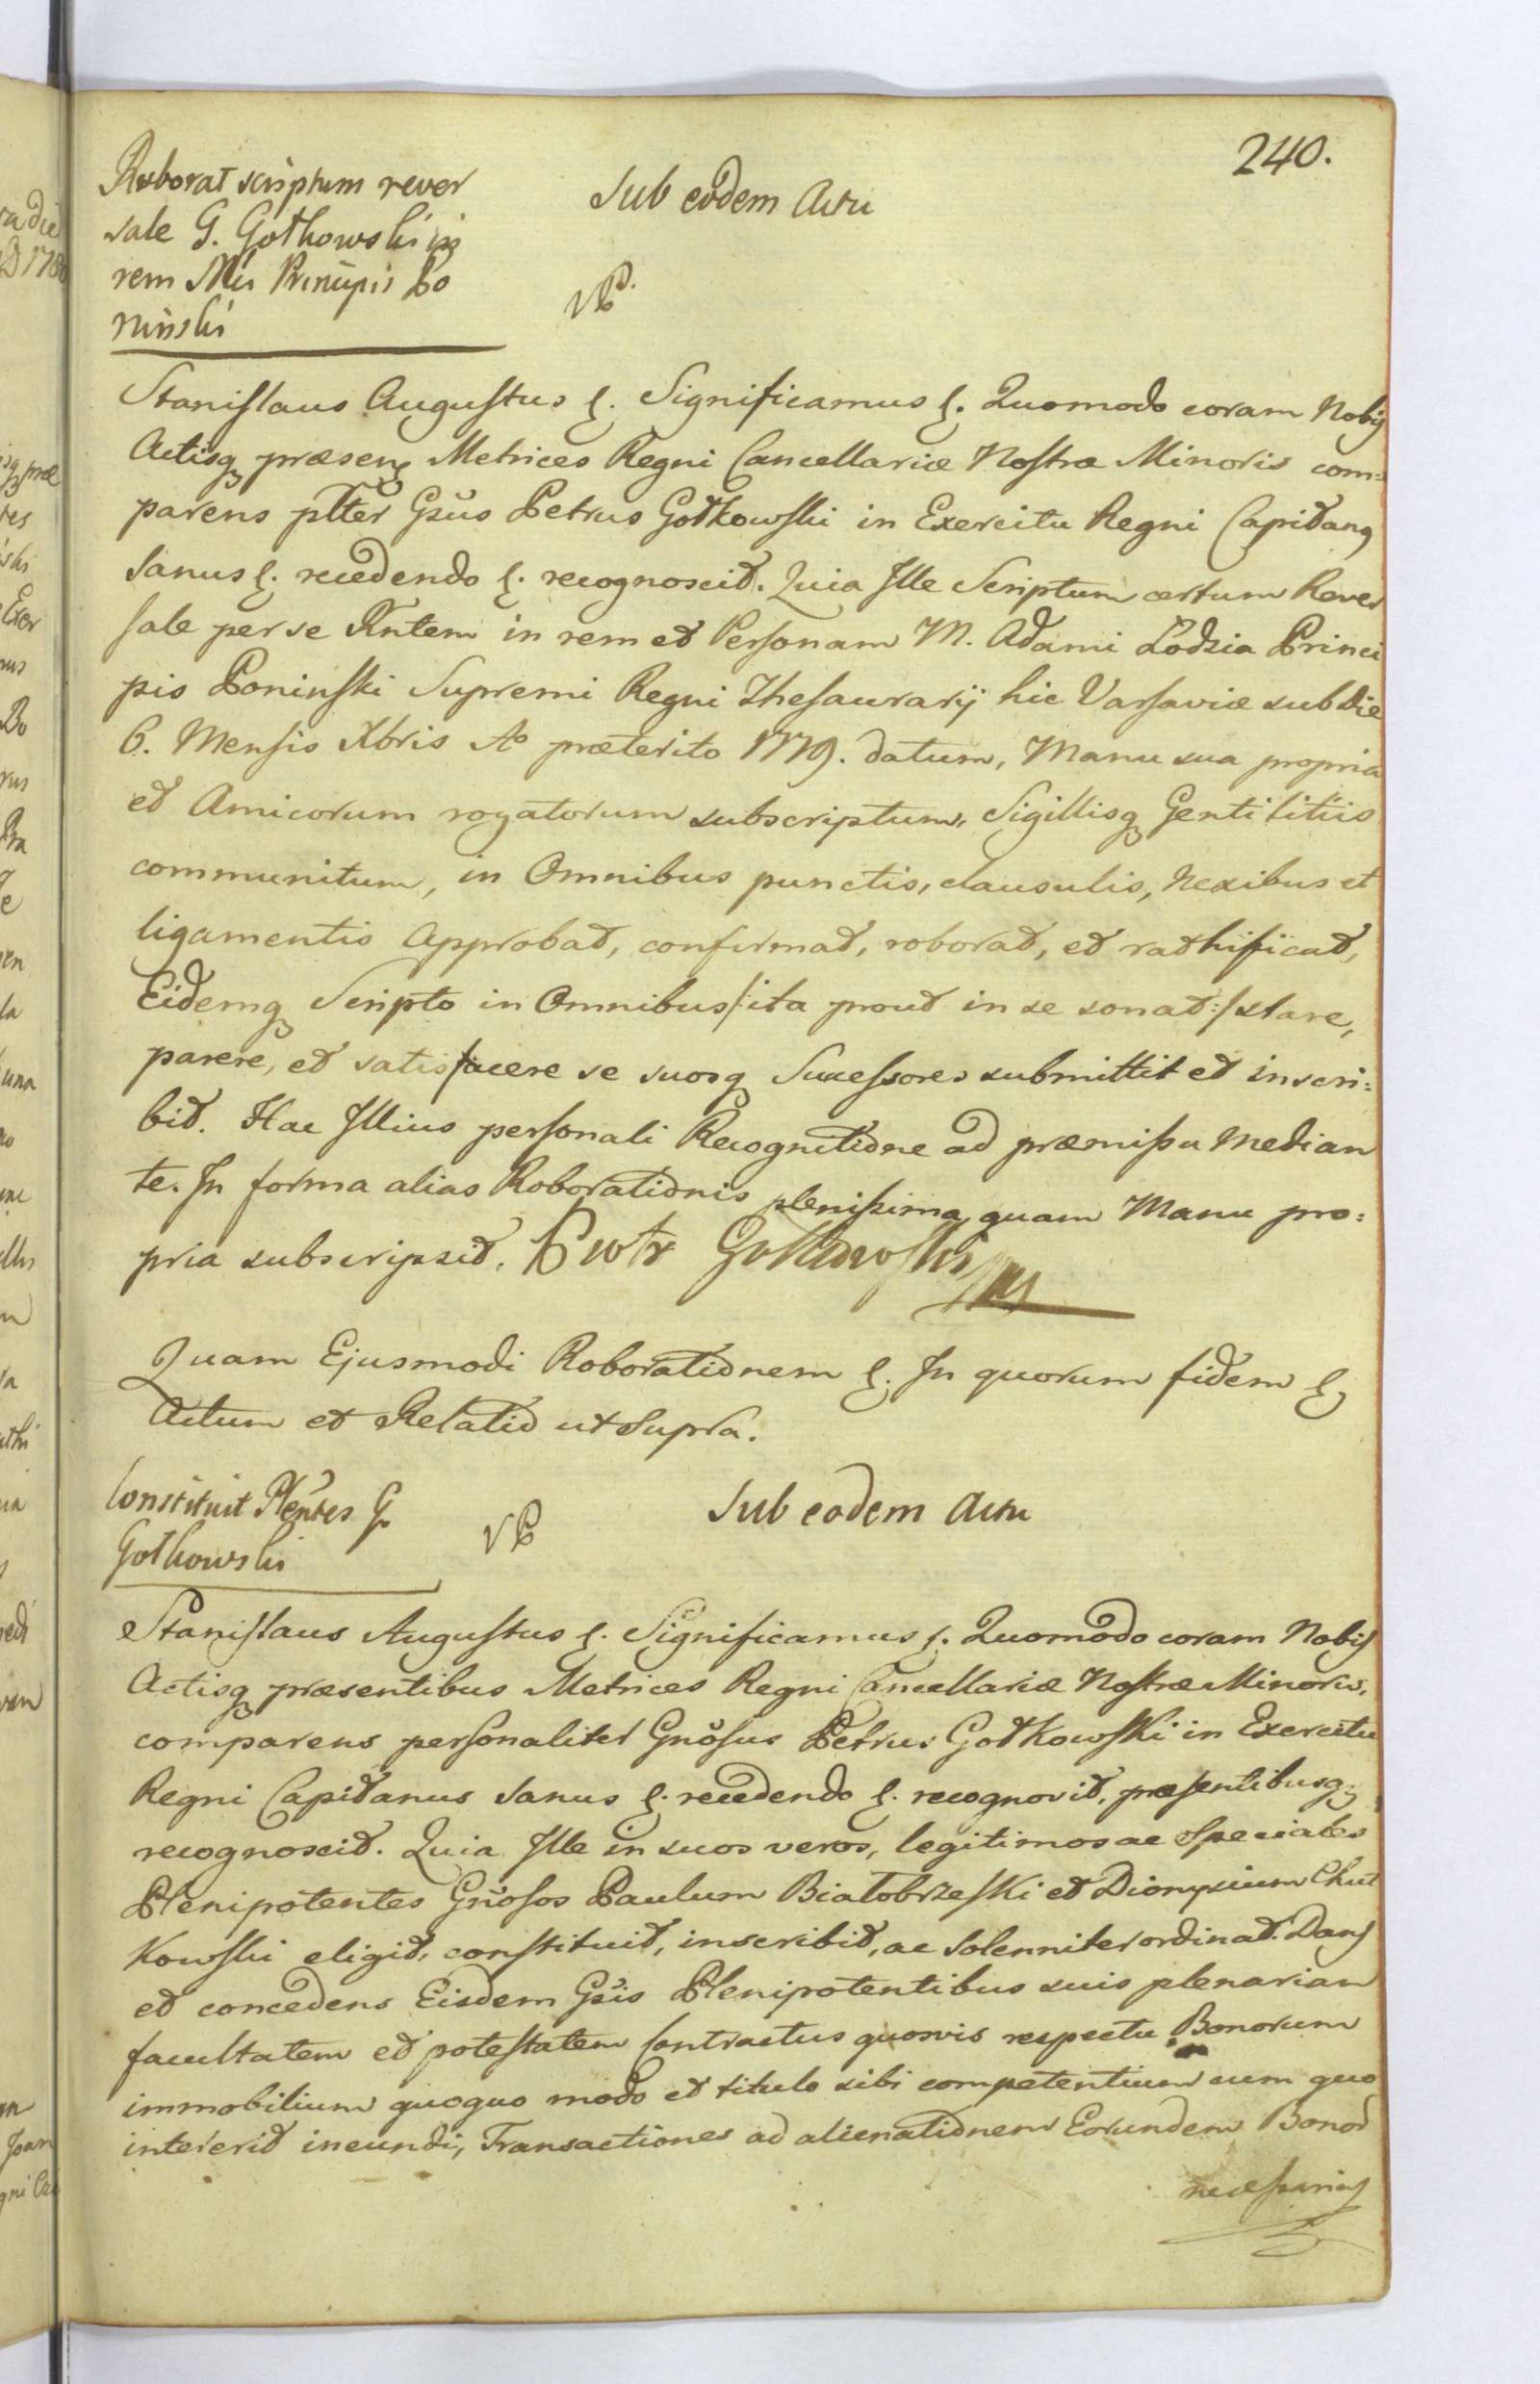 240.
Roborat scriptum rever
sale G. Gotkowski in
rem Mci Principis Po
ninski
Sub eodem Actu
Stanislaus Augustus &. Significamus &. Quomodo coram Nobis
Actisq præsen Metrices Regni Cancellariæ Nostræ Minoris com=
parens plter Gsus Petrus Gotkowski in Exercitu Regni Capitang
sanus &. recedendo &. recognoscit. Quia Ille Scriptum certum Rever
sale per se in rem et Personam M. Adami Lodzia Princi
pis Poninski Supremi Regni Thesaurarij hic Varsaviæ sub die
6. Mensis Xbris Ao præterito 1779. datum, Manu sua propria
et Amicorum rogatorum subscriptum, Sigillisq Gentilitiis
communitum, in Omnibus punctis, clausulis, Nexibus et
ligamentis Approbat, confirmat, roborat, et rathificat,
Eidemq Scripto in Omnibus/:ita prout in se sonat:/stare,
parere, et satisfacere se suosq Successores submittit et inscri=
bit. Hac Illius personali Recognitione ad præmissa Median
te. In forma alias Roborationis plenissima, quam Manu pro=
pria subscripsit. Piotr Gotkowski
Quam Ejusmodi Roborationem &. In quorum fidem &
Actum et Relatio ut Supra.
Constituit Plentes G.
Gotkowski
Sub eodem Actu
Stanislaus Augustus &. Significamus &. Quomodo coram Nobis
Actisq præsentibus Metrices Regni Cancellariæ Nostræ Minoris,
comparens personaliter Gnosus Petrus Gotkowski in Exercitu
Regni Capitanus sanus &. recedendo &. recognovit, præsentibusq
recognoscit. Quia Ille in suos veros, legitimos ac Speciales
Plenipotentes Gnosos Paulum Białobrzeski et Dionysium Chut
kowski eligit, constituit, inscribit, ac Solenniter ordinat. Dans
et concedens Eisdem Gsis Plenipotentibus suis plenariam
facultatem et potestatem Contractus quosvis respectu Bonorum
immobilium quoquo modo et titulo sibi competentium cum quo
intererit ineundi, Transactiones ad alienationem Eorundem Bonor
necessarias